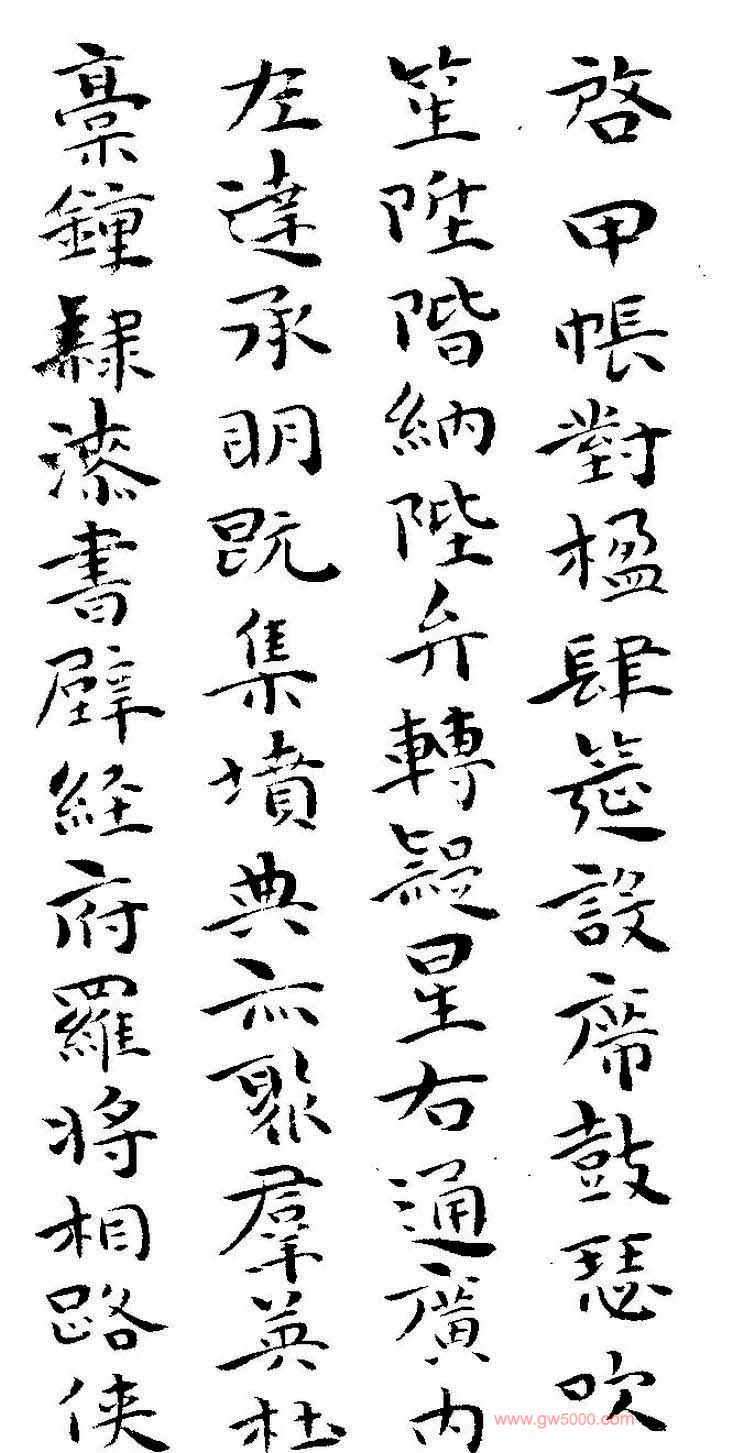 啓甲帳對楹肆筵設席鼓瑟吹
笙陞階納陛弁轉疑星右通廣內
左達承明既集墳典亦聚群英杜
稾鍾隸漆書壁經府羅將相路俠
www.gw5000.com